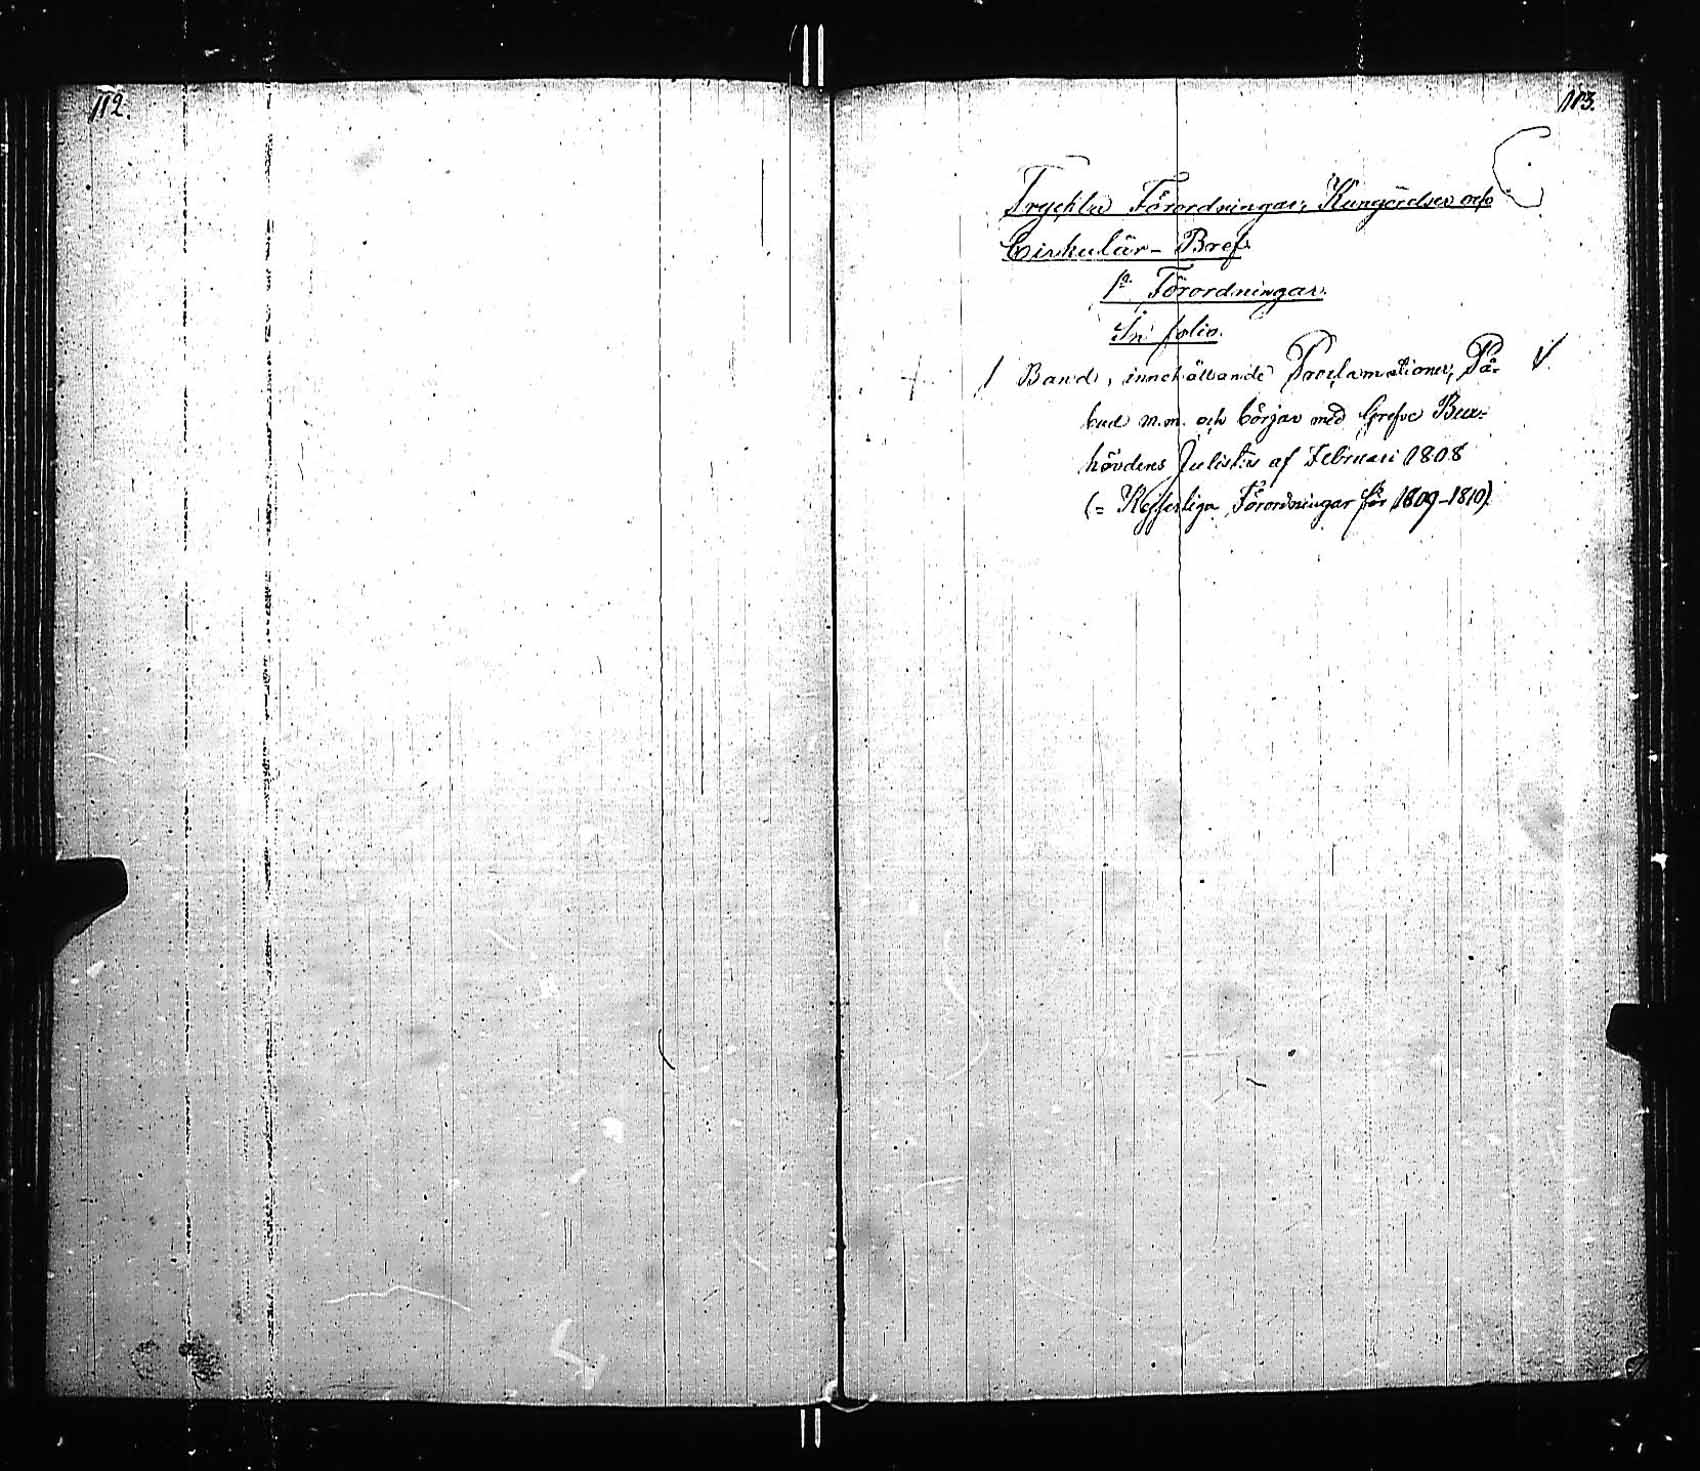 112.
113.
Tryckta Förordningar, Kungörelser och
Cirkulär-Bref.
1º Förordningar.
In folio.
1 Band, innehållande Proclamationer, På-
bud m.m. och börjar med Grefve Bux-
hövdens af Februari 1808
(= Kejserliga Förordningar för 1809-1810).